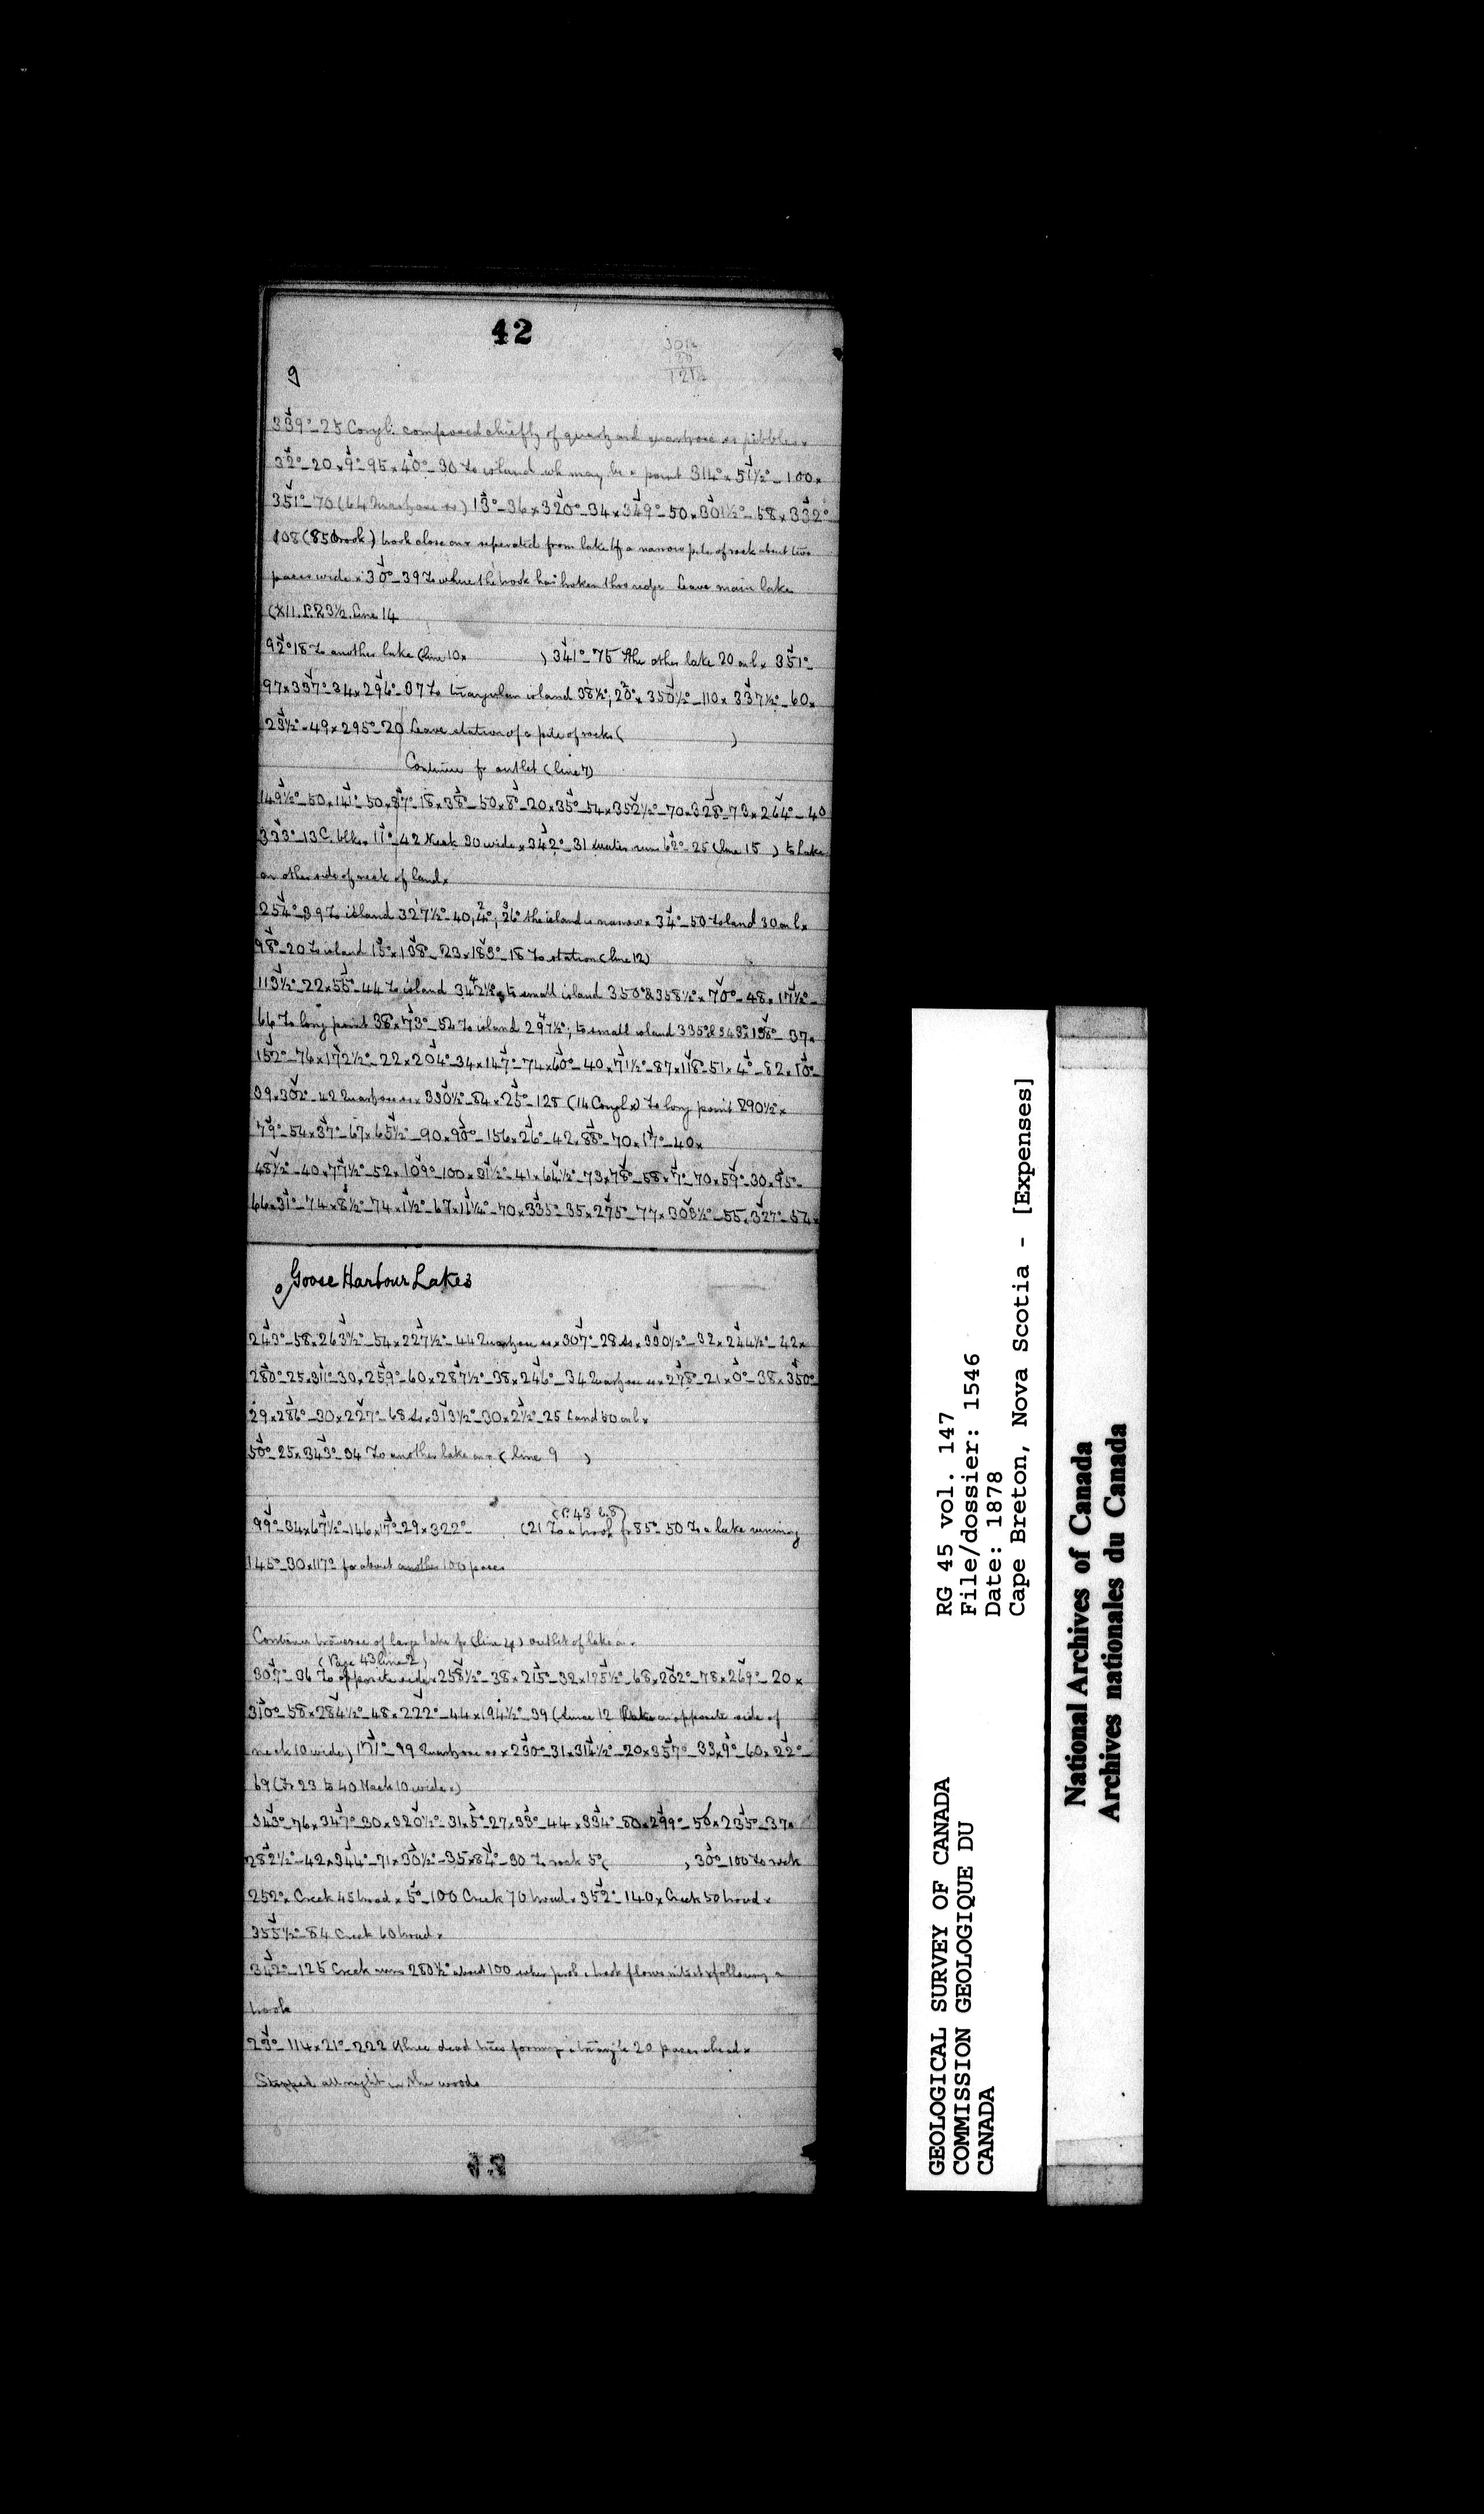 42
301½
180
121½
9
339°_25 Congl. composed chiefly of quartz and quartzose ss pebblesx
32°_20x9°_95x40°_30 To island wh may be a point 314°x51½°_100x
351°_70(64 Quartzose ss) 13°_36x320°_34x349°_50x301½°_58x332°
108(85 brook) brook close our seperated from lake by a narrow pile of rock about two
paces widex 30°_39 To where the brook has broken thro ridge Leave main lake
(XII. P.23½. Line 14
92°18 To another lake (line 10x ) 341°_75 The other lake 20 on lx 351°_
97x337°_34x296°_87 To triangular island 38½°; 20°x350½°_110x337½°_60x
23½°_49x295°_20 Leave station of a pile of rocks ( )
Continue fr outlet (line 7)
149½°_50x141°_50x87°_18x38°_50x8°_20x35°_54x352½°_70x328°_73x264°_40
333°_13 C. blkx 11°_42 Neck 30 widex342°_31 Water runs 62°_25 (line 15 ) to Lake
on other side of neck of landx
254°_39 To island 327½°_40, 4°; 26° the island is narrowx 34°_50 To land 30 on lx
98°_20 To island 15°x138°_23x183°_18 To station (line 12)
113½°_22x55°_44 To island 342½° to small island 350°&358½°x70°_48x17½°_
66 To long point 38°x73°_52 To island 297½°; to small island 335°&343°x138°_37x
152°_76x172½°_22x204°_34x147°_74x60°_40x71½°_87x118°_51x4°_82x10°_
39x302°_42 Quartzose ssx 330½°_84x25°_128 (14 Conglx) To long point 290½°x
79°_54x37°_67x65½°_90x90°_156x26°_42x88°_70x17°_40x
48½°_40x77½°_52x109°_100x31½°_41x64½°_73x78°_58x7°_70x59°_30x95°_
66x31°_74x8½°_74x1½°_67x11¼°_70x335°_35x275°_77x303½°_55x327°_54x
Goose Harbour Lakes
243°_58x263½°_54x227½°_44 Quartzose ssx307°_28 dox330½°_32x244½°_42x
280°_25x311°_30x259°_60x287½°_38x246°_34 Quartzose ssx278°_21x0°_38x350°_
29x286°_30x227°_68 dox313½°_30x2½°_25 Land 50 on lx
50°_25x343°_34 To another lake on r (line 9 )
(P. 43 L.8)
99°_34x67½°_146x17°_29x322°_ (21 To a brook fr 85°_50 To a lake running
145°_30x117° for about another 100 paces
Continue traverse of large lake fr (line 4) outlet of lake on r
(Page 43 line 2)
307°_36 To opposite sidex 258½°_38x215°_32x175½°_68x202°_78x269°_20x
310°_58x284½°_48x222°_44x194½°_39 (Since 12 Lake on opposite side of
neck 10 wide) 171°_99 Quartzose ssx230°_31x314½°_20x357°_33x9°_60x22°_
69 (Fr 23 to 40 Neck 10 widex)
343°_76x347°_30x320½°_31x5°_27x33°_44x334°_80x299°_50x235°_37x
282½°_42x344°_71x30½°_35x84°_30 To rock 5°( ) 30°_100 To rock
252°x Creek 45 broadx 5°_100 Creek 70 broadx 352°_140x Creek 50 broadx
355½°_84 Creek 60 broadx
342°_125 Creek runs 280½° about 100 when prob. a brook flows into itxfollowing a
brook
23°_114x21°_222 Three dead trees forming a triangle 20 paces aheadx
Stopped all night in the woods
GEOLOGICAL SURVEY OF CANADA
COMMISSION GEOLOGIQUE DU
CANADA
RG 45 vol. 147
File/dossier: 1546
Date: 1878
Cape Breton, Nova Scotia - [Expenses]
National Archives of Canada
Archives nationales du Canada